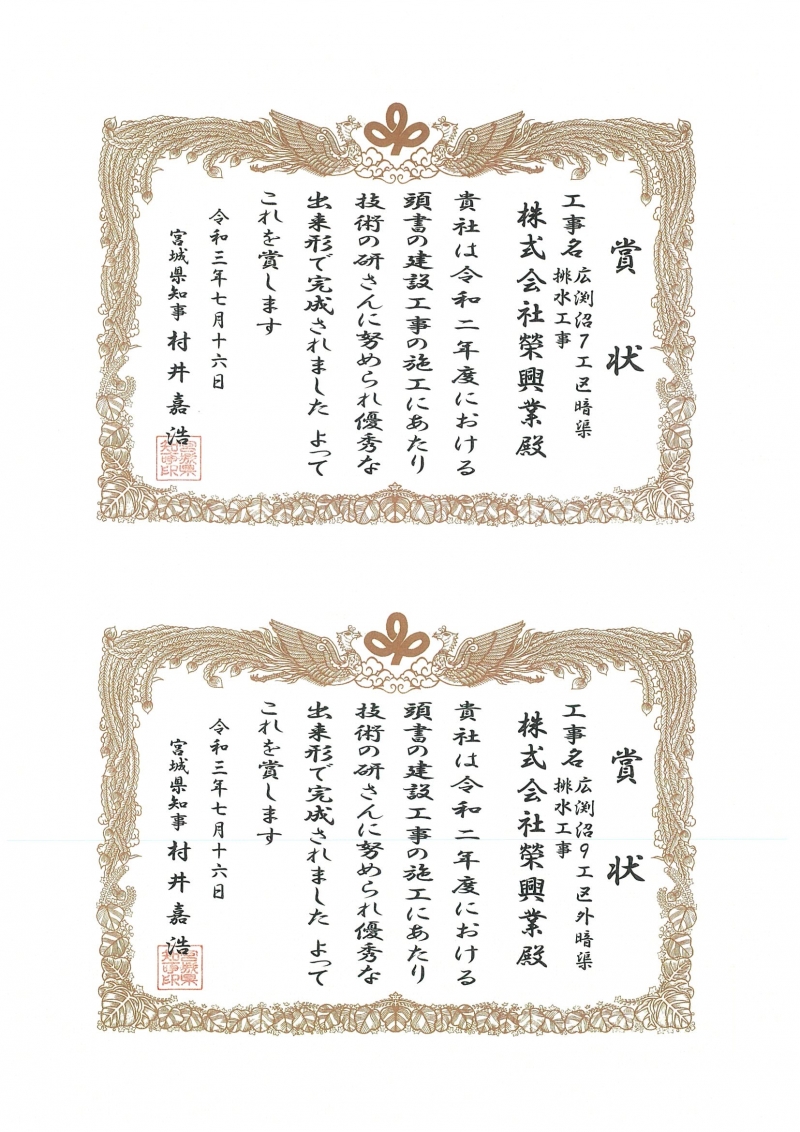 賞状
工事名 広渕沼7工区暗渠
排水工事
株式会社榮興業殿
貴社は令和二年度における
頭書の建設工事の施工にあたり
技術の研さんに努められ優秀な
出来形で完成されました よって
これを賞します
令和三年七月十六日
宮城県知事 村井嘉浩
宮城県知事印
賞状
工事名 広渕沼9工区外暗渠
排水工事
株式会社榮興業殿
貴社は令和二年度における
頭書の建設工事の施工にあたり
技術の研さんに努められ優秀な
出来形で完成されました よって
これを賞します
令和三年七月十六日
宮城県知事 村井嘉浩
宮城県知事印